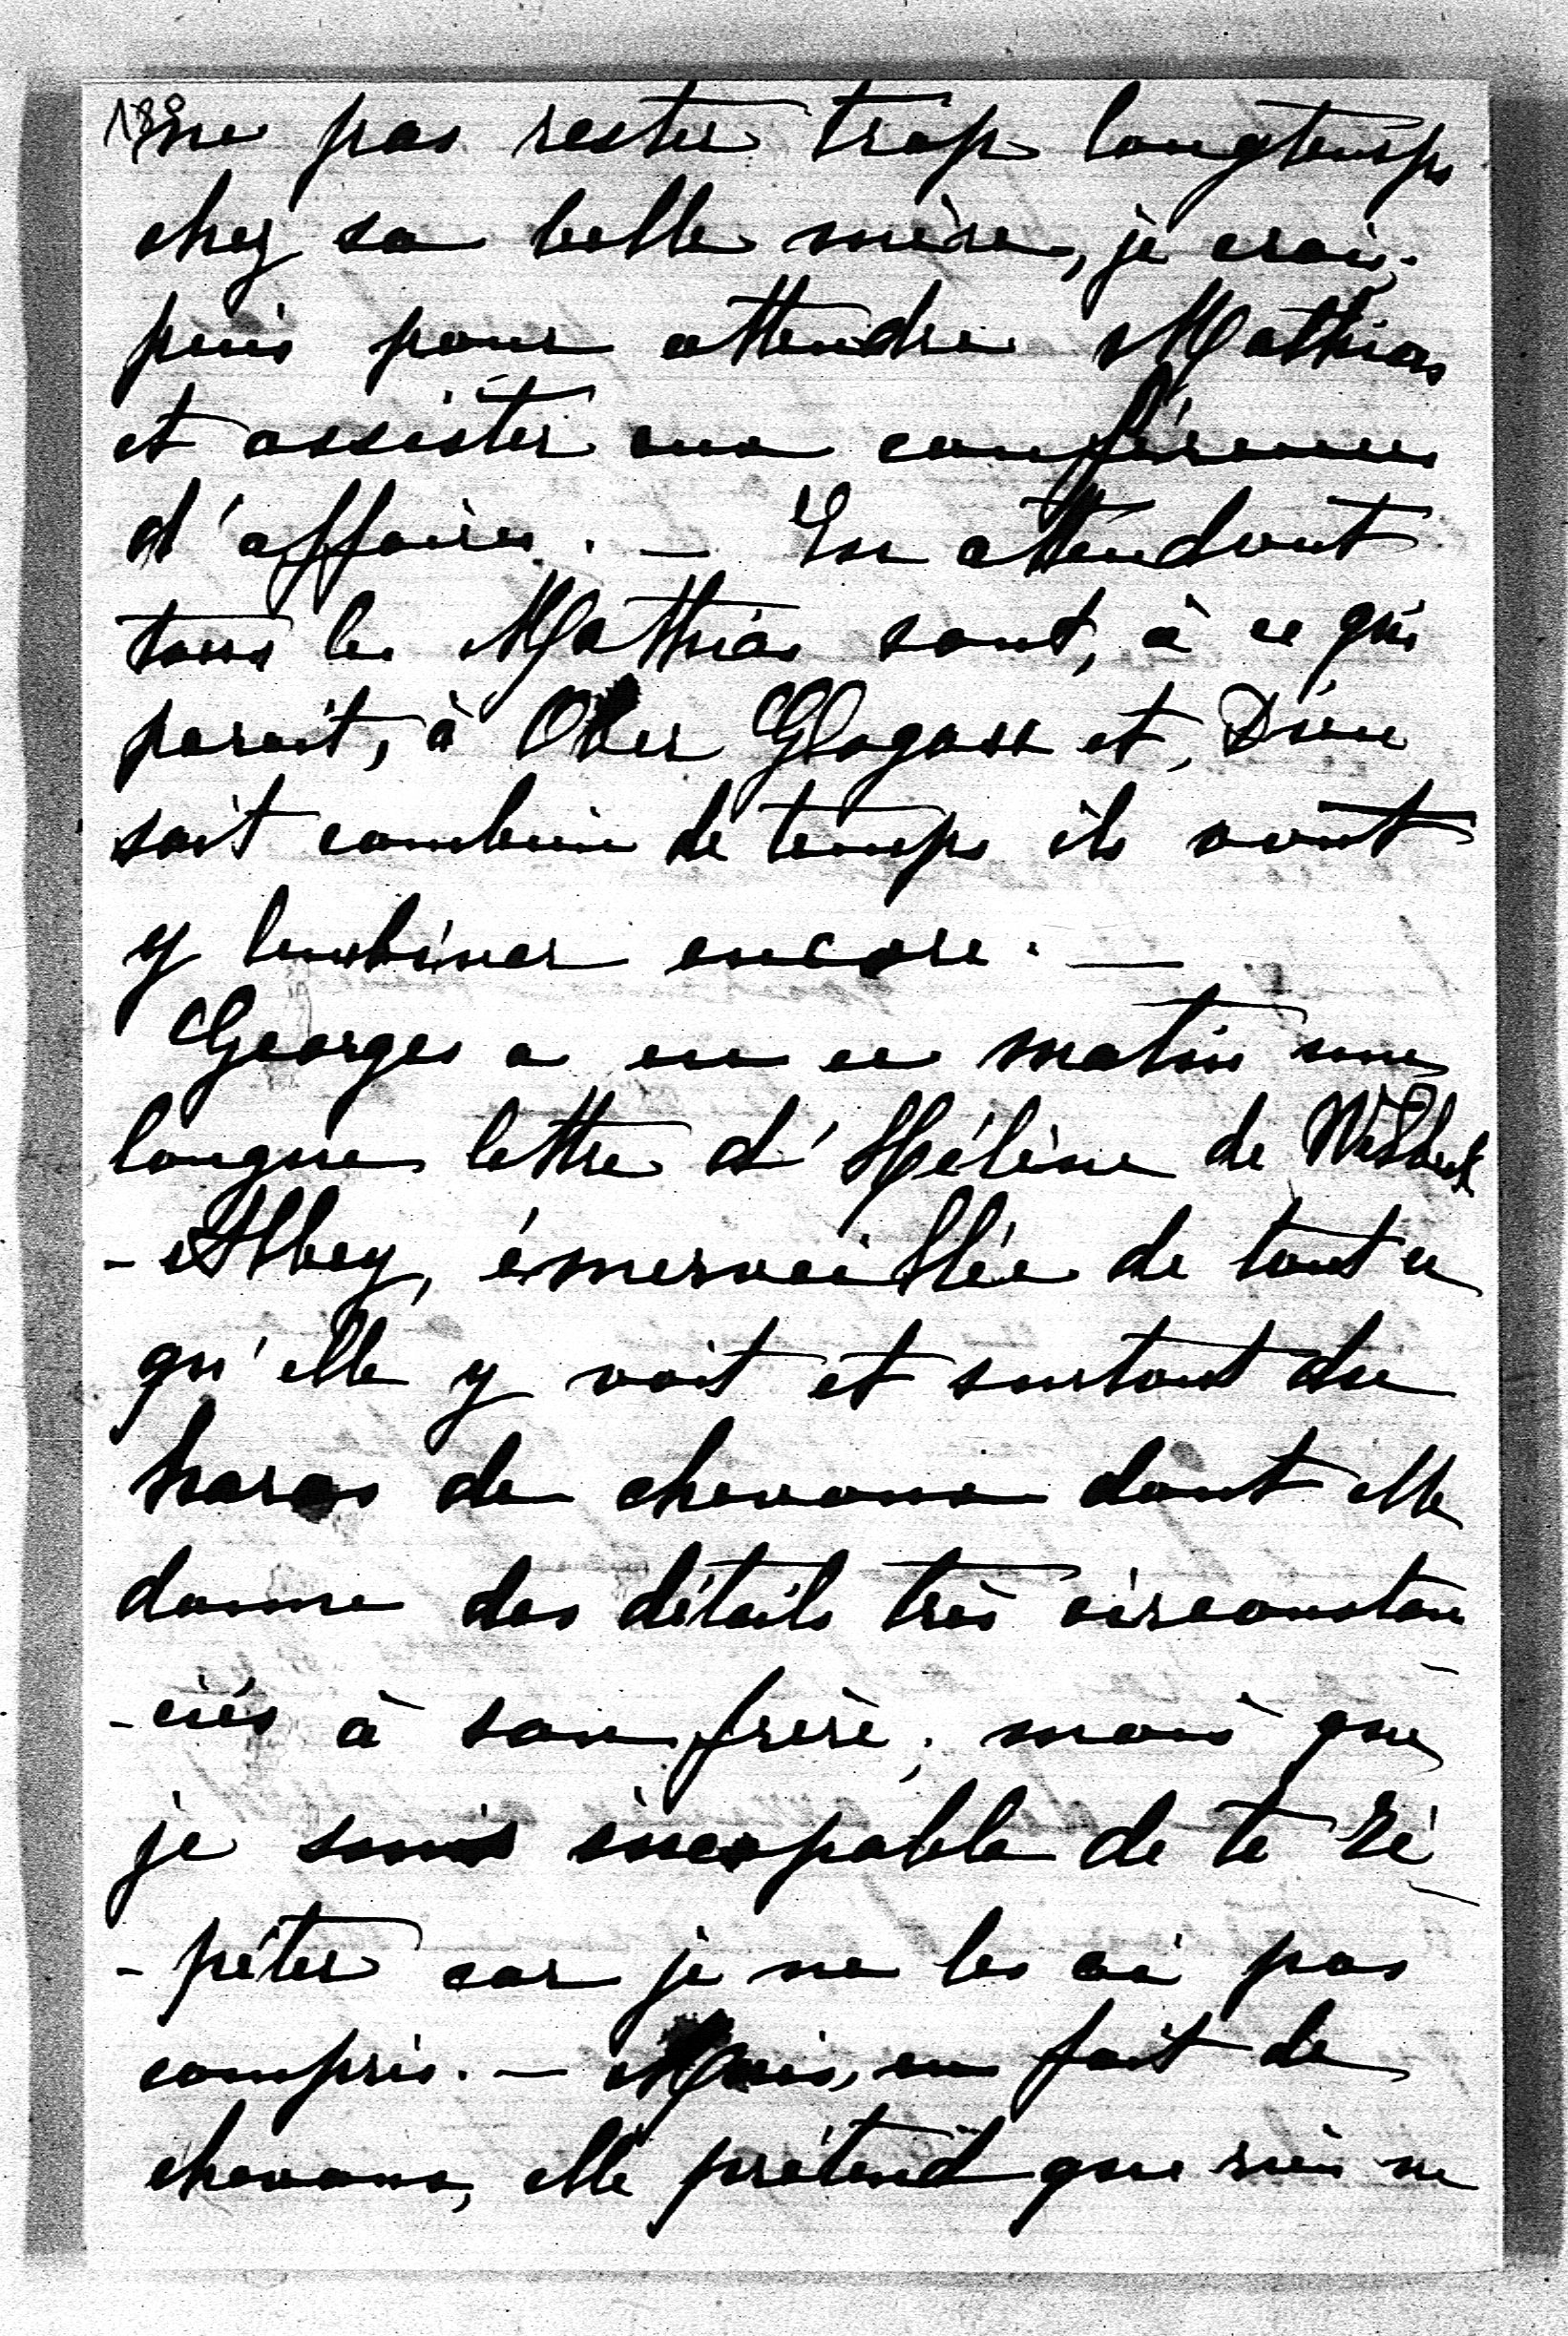 188
ne pas rester trop longtemps
chez sa belle mère, je crois.
puis pour attendre Mathias
et assister aux conférences
d'affaires. — En attendant
tous les Mathias sont, à ce qui
parait, à Ober Glogau et, Dieu
sait combien de temps ils vont
y lambiner encore. —
Georges a eu ce matin une
longue lettre d'Hélène de Welbeck
- Abbey, émerveillée de tout ce
qu'elle y voit et surtout du
haras de chevaux dont elle
donne des détails très circonstan
- ciés à son frère, mais que
je suis incapable de te ré
- péter car je ne les ai pas
compris. — Mais, en fait de
chevaux, elle prétend que rien ne